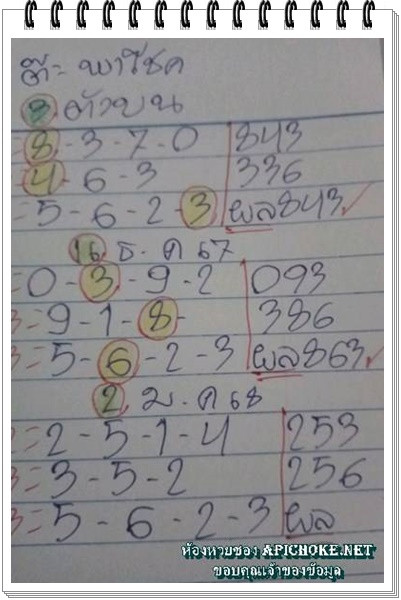 ต๊ะ พาโชค
3 ตัวบน
=8-3-7-0 843
=4-6-3 336
=5-6-2-3 ผล843✓
16 ธ.ค 67
=0-3-9-2 093
3=9-1-8- 386
3=5-6-2-3 ผล863✓
2 ม.ค 68
=2-5-1-4 253
=3-5-2 256
3=5-6-2-3 ผล
ห้องหวยซอง APICHOKE.NET
ขอบคุณเจ้าของข้อมูล